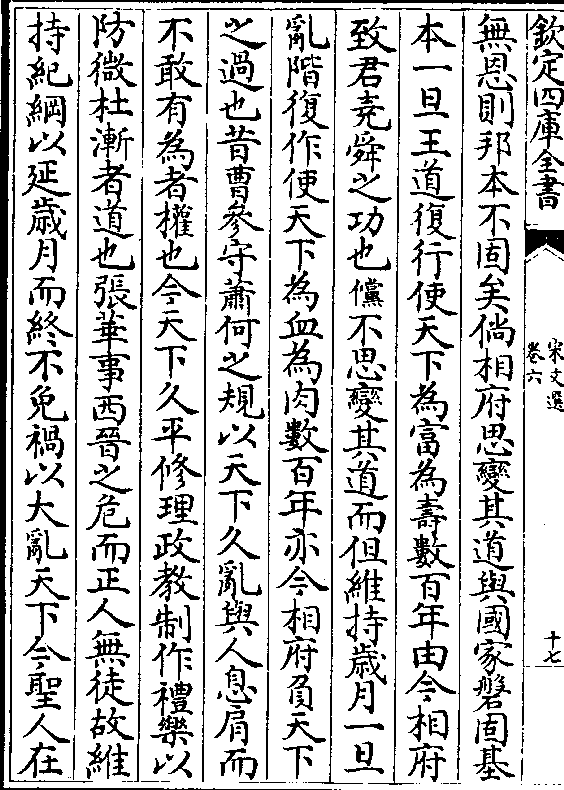 欽定四庫全書
宋文選
卷六
十七
無恩則邦本不固矣倘相府思變其道與國家磐固基
本一旦王道復行使天下為富為壽數百年由今相府
致君堯舜之功也儻不思變其道而但維持歲月一旦
亂階復作使天下為血為肉數百年亦今相府負天下
之過也昔曹參守蕭何之規以天下久亂與人息肩而
不敢有為者權也今天下久平修理政教制作禮樂以
防微杜漸者道也張華事西晉之危而正人無徒故維
持紀綱以延歲月而終不免禍以大亂天下今聖人在